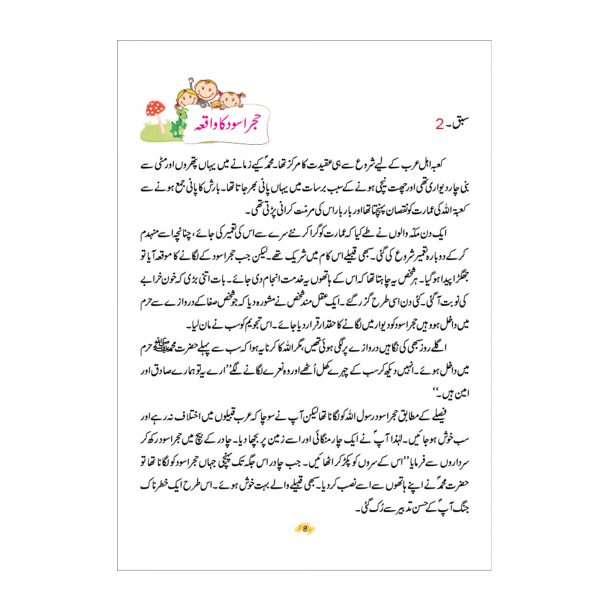 سبق۔ 2
حجر اسود کا واقعہ
کعبہ اہل عرب کے لیے شروع سے ہی عقیدت کا مرکز تھا۔ محمدؐ کے زمانے میں یہاں پتھروں اور مٹی سے
بنی چار دیواری تھی اور چھت نیچی ہونے کے سبب برسات میں یہاں پانی بھر جاتا تھا۔ بارش کا پانی جمع ہونے سے
کعبۃ اللہ کی عمارت کو نقصان پہنچتا تھا اور بار بار اس کی مرمّت کرانی پڑتی تھی۔
ایک دن مکہ والوں نے طے کیا کہ عمارت کو گرا کر نئے سرے سے اس کی تعمیر کی جائے، چنانچہ اسے منہدم
کر کے دوبارہ تعمیر شروع کی گئی۔ سبھی قبیلے اس کام میں شریک تھے۔ لیکن جب حجر اسود کے لگانے کا موقعہ آیا تو
جھگڑا پیدا ہو گیا۔ ہر شخص یہ چاہتا تھا کہ اس کے ہاتھوں یہ خدمت انجام دی جائے۔ بات اتنی بڑی کہ خون خرابے
کی نوبت آ گئی۔ کئی دن اسی طرح گزر گئے۔ ایک عقل مند شخص نے مشورہ دیا کہ جو شخص صفا کے دروازے سے حرم
میں داخل ہو وہیں حجر اسود کو دیوار میں لگانے کا حقدار قرار دیا جائے۔ اس تجویم کو سب نے مان لیا۔
اگلے روز سبھی کی نگاہیں دروازے پر لگی ہوئی تھیں، مگر اللہ کا کرنا یہ ہوا کہ سب سے پہلے حضرت محمد ﷺ حرم
میں داخل ہوئے۔ انہیں دیکھ کر سب کے چہرے کھل اُٹھے اور وہ نعرے لگانے لگے ”ارے یہ تو ہمارے صادق اور
امین ہیں۔“
فیصلے کے مطابق حجر اسود رسول اللہ کو لگانا تھا لیکن آپ نے سوچا کہ عرب قبیلوں میں اختلاف نہ رہے اور
سب خوش ہو جائیں۔ لہٰذا آپؐ نے ایک چار منگائی اور اسے زمین پر بچھا دیا۔ چادر کے بیچ میں حجر اسود رکھ کر
سرداروں سے فرمایا ”اس کے سروں کو پکڑ کر اٹھائیں۔ جب چادر اس جگہ تک پہنچی جہاں حجر اسود کو لگانا تھا تو
حضرت محمدؐ نے اپنے ہاتھوں سے اسے نصب کر دیا۔ سبھی قبیلے والے بہت خوش ہوئے۔ اس طرح ایک خطرناک
جنگ آپؐ کے حسن تدبیر سے رُک گئی۔
8